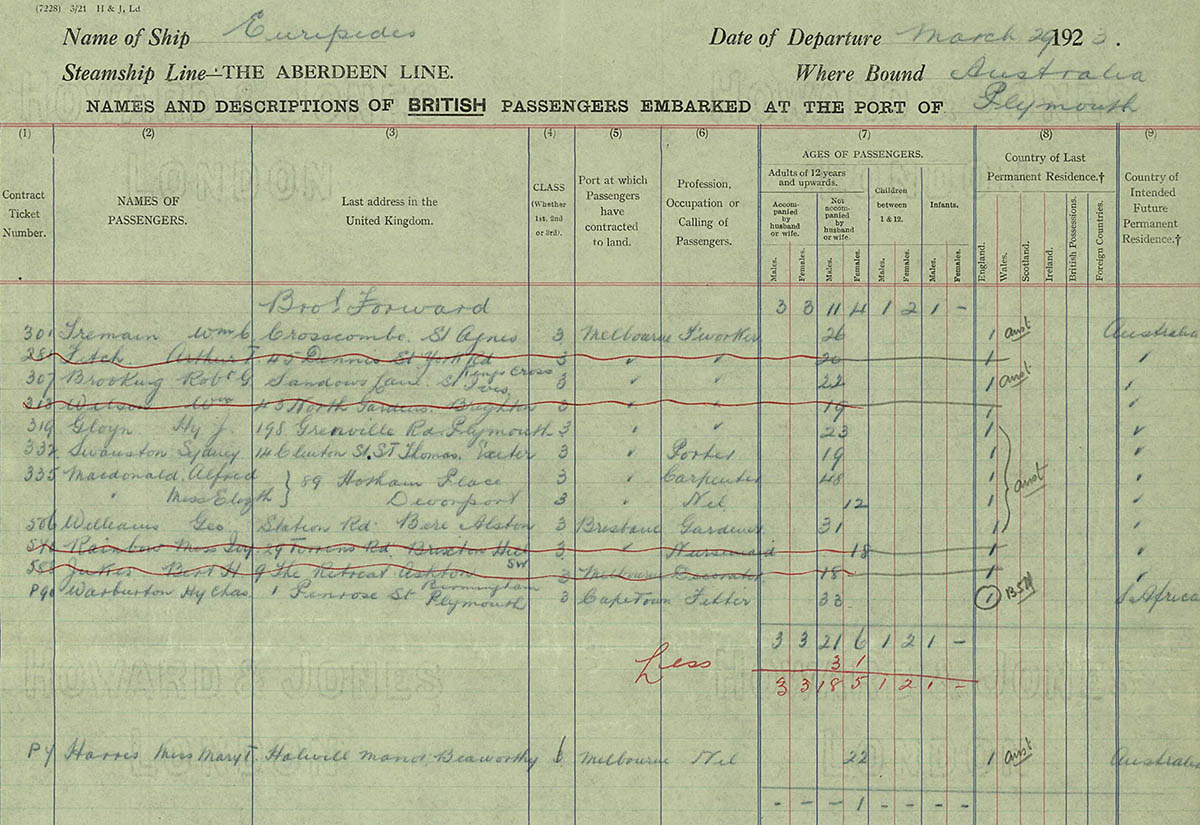 (7228) 3/21 H & J, Ld
Name of Ship Euripides Date of Departure March 29 1923.
Steamship Line—THE ABERDEEN LINE. Where Bound Australia
NAMES AND DESCRIPTIONS OF BRITISH PASSENGERS EMBARKED AT THE PORT OF Plymouth
(1) (2) (3) (4) (5) (6) (7) (8) (9)
Contract Ticket Number.
NAMES OF PASSENGERS.
Last address in the United Kingdom.
CLASS (Whether 1st, 2nd or 3rd).
Port at which Passengers have contracted to land.
Profession, Occupation or Calling of Passengers.
AGES OF PASSENGERS.
Adults of 12 years and upwards.
Accompanied by husband or wife.
Not accompanied by husband or wife.
Children between 1 & 12.
Infants.
Males. Females. Males. Females. Males. Females. Males. Females.
Country of Last Permanent Residence.†
England. Wales. Scotland. Ireland. British Possessions. Foreign Countries.
Country of Intended Future Permanent Residence.†
Brot Forward 3 3 11 4 1 2 1 -
301 Tremain Wm C. Crosscombe. St Agnes 3 Melbourne 26 1 aust Australia
281 Fitch Arthur T 45 Dennis St York Rd 3 " " 20 1 "
Kings Cross
307 Brooking Robt G. Sandows Lane. St Ives 3 " " 22 1 aust "
313 Wilson Wm 43 North Gardens. Brighton 3 " " 19 1 "
319 Gloyn Hy J. 198 Grenville Rd Plymouth 3 " " 23 1 "
332 Swanston Sydney 14 Clinton St. St Thomas. Exeter 3 " Porter 19 1 "
335 Macdonald Alfred } 89 Hotham Place 3 " Carpenter 48 1 aust "
" Miss Elizth Devonport 3 " Nil 12 1 "
506 Williams Geo Station Rd Bere Alston 3 Brisbane Gardener 31 1 "
540 Rainbow Miss Ivy 29 Torrens Rd Brixton Hill 3 " Nursemaid 18 1 "
SW
588 Jukes Bert H. 9 The Retreat Ashton 3 Melbourne Decorator 18 1
Birmingham
P90 Warburton Hy Chas. 1 Penrose St Plymouth 3 Cape Town Fitter 33 1 BSA S Africa
3 3 21 6 1 2 1 -
Less 3 1
3 3 18 5 1 2 1 -
P4 Harris Miss Mary T. Halwill Manor, Beaworthy Melbourne Nil 22 1 aust Australia
- - - 1 - - - -
HOWARD & JONES
LONDON